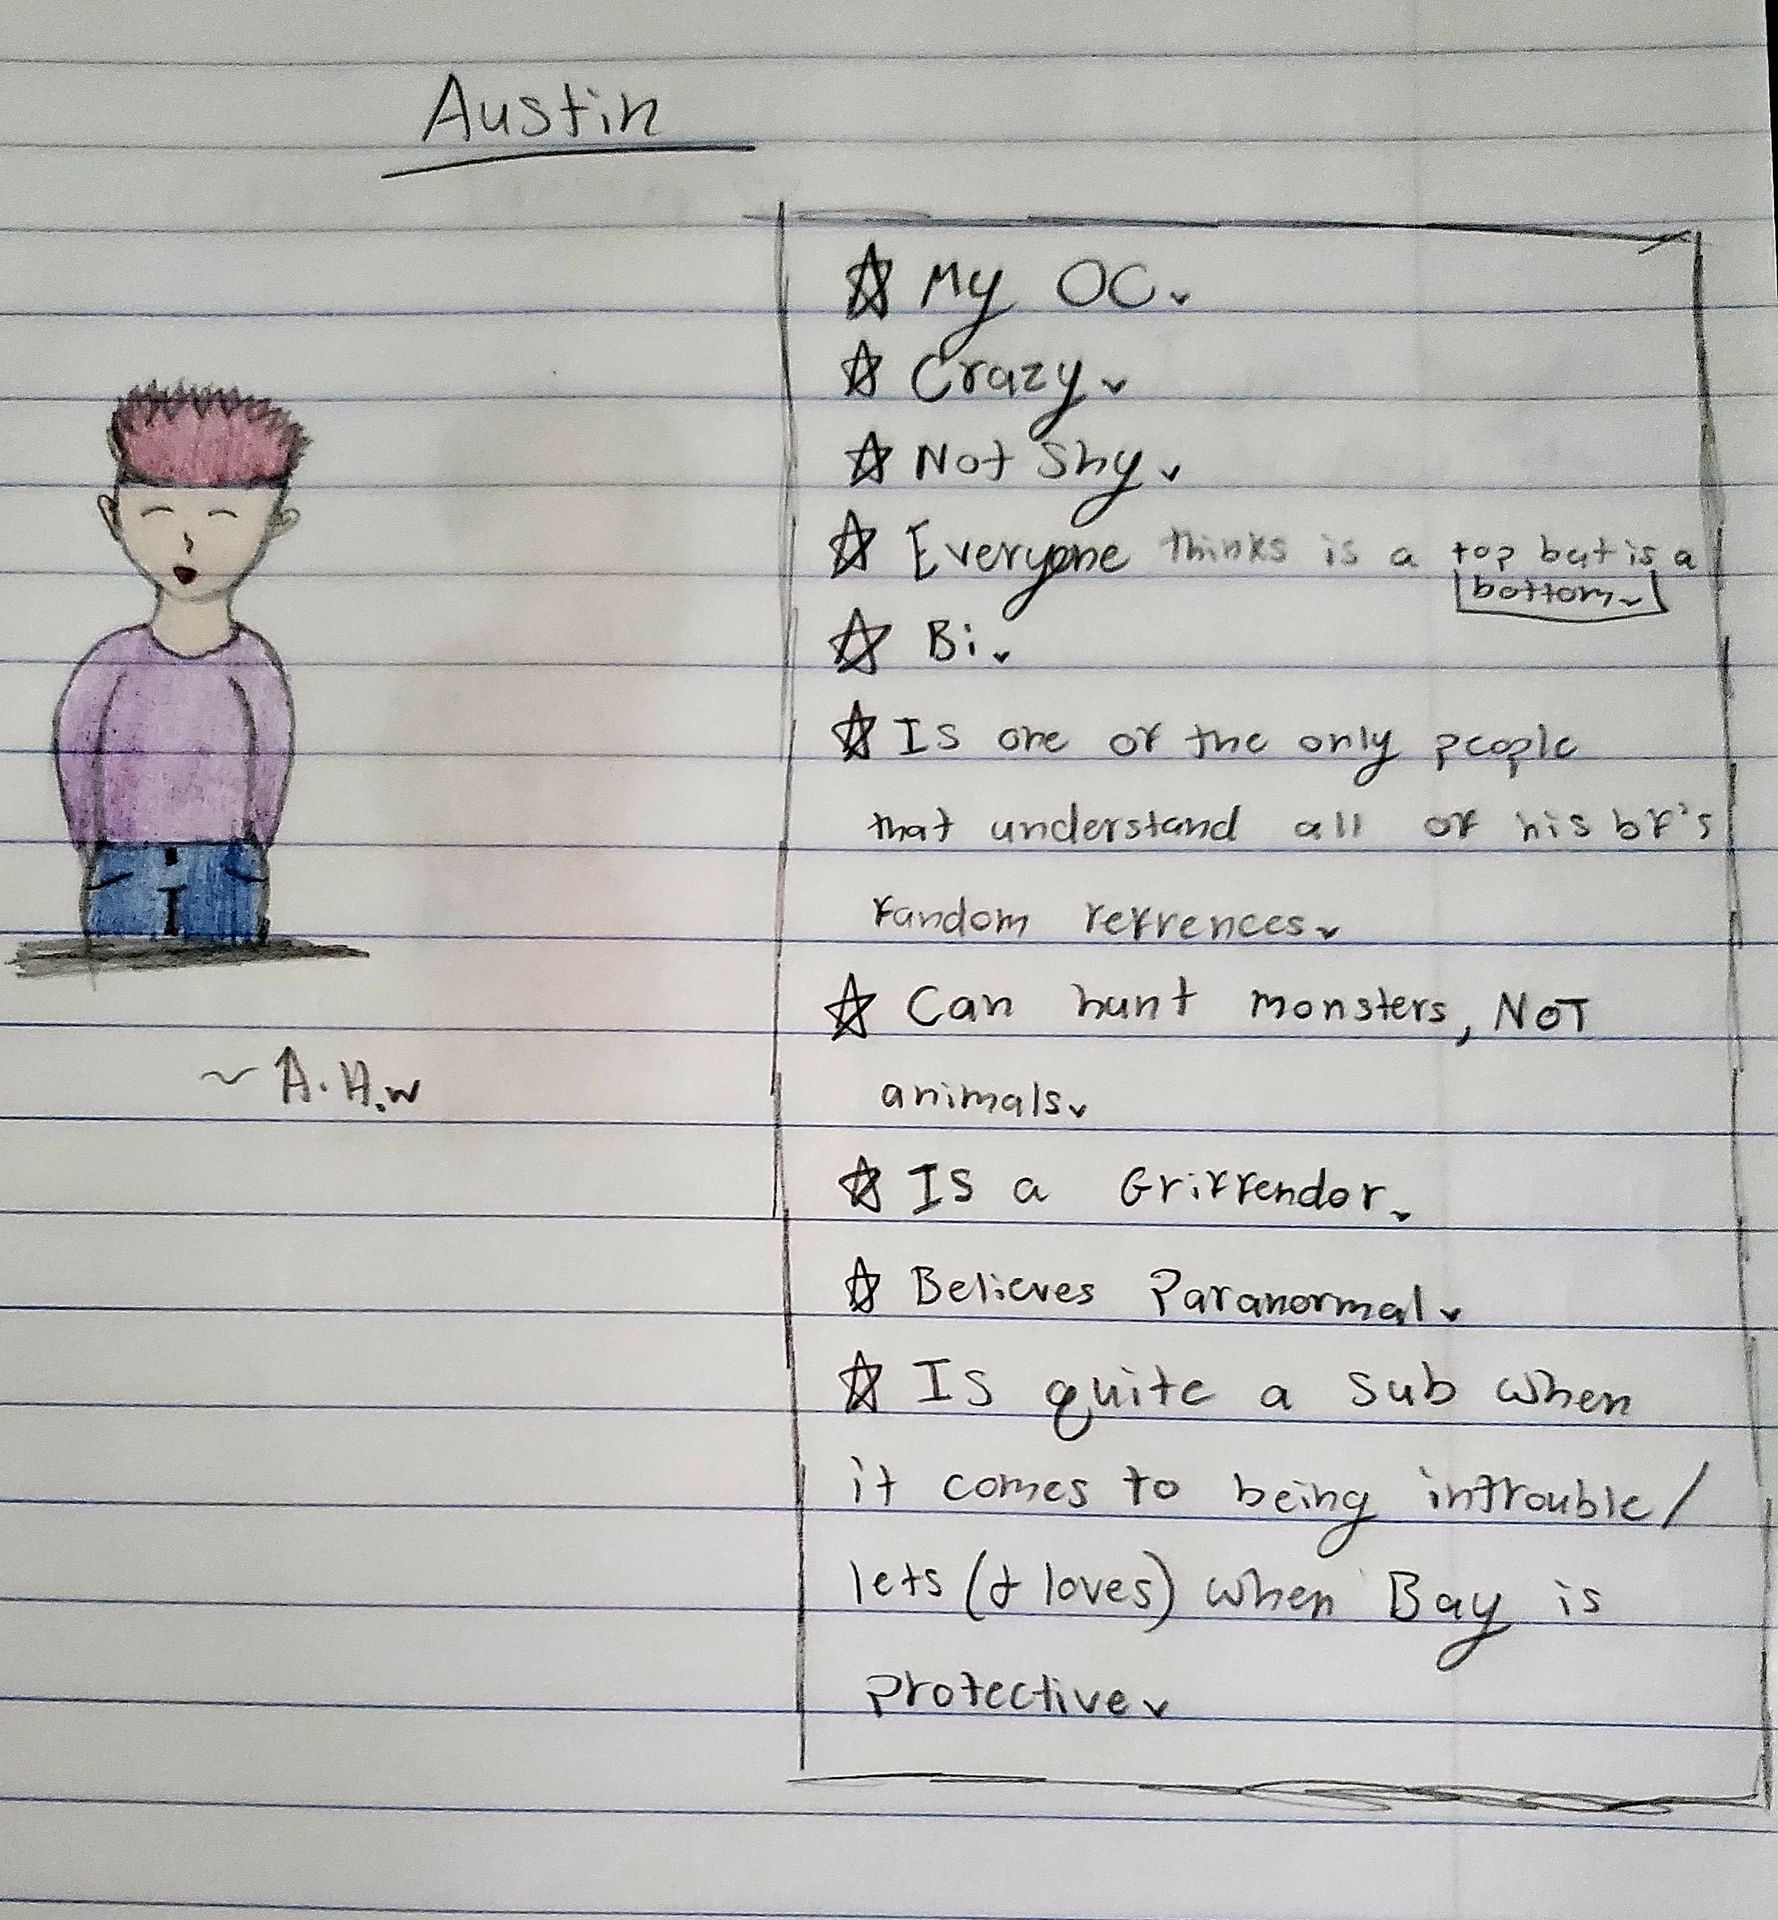 Austin
☆ My OC.
☆ Crazy.
☆ Not Shy.
☆ Everyone thinks is a top but is a
bottom.
☆ Bi.
☆ Is one of the only people
that understand all of his bf's
random refrences.
☆ Can hunt monsters, NOT
animals.
~ A.H.W
☆ Is a Griffendor.
☆ Believes Paranormal.
☆ Is quite a sub when
it comes to being introuble/
lets (& loves) when Bay is
protective.